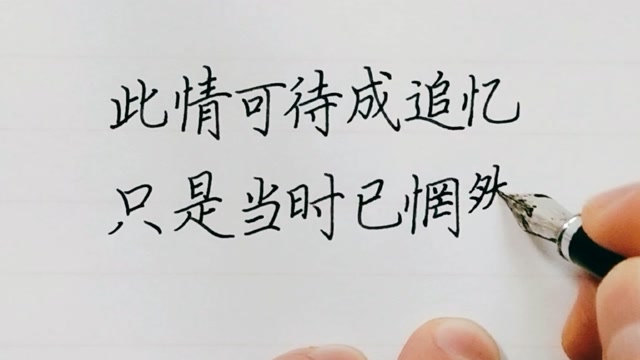 此情可待成追忆
只是当时已惘然